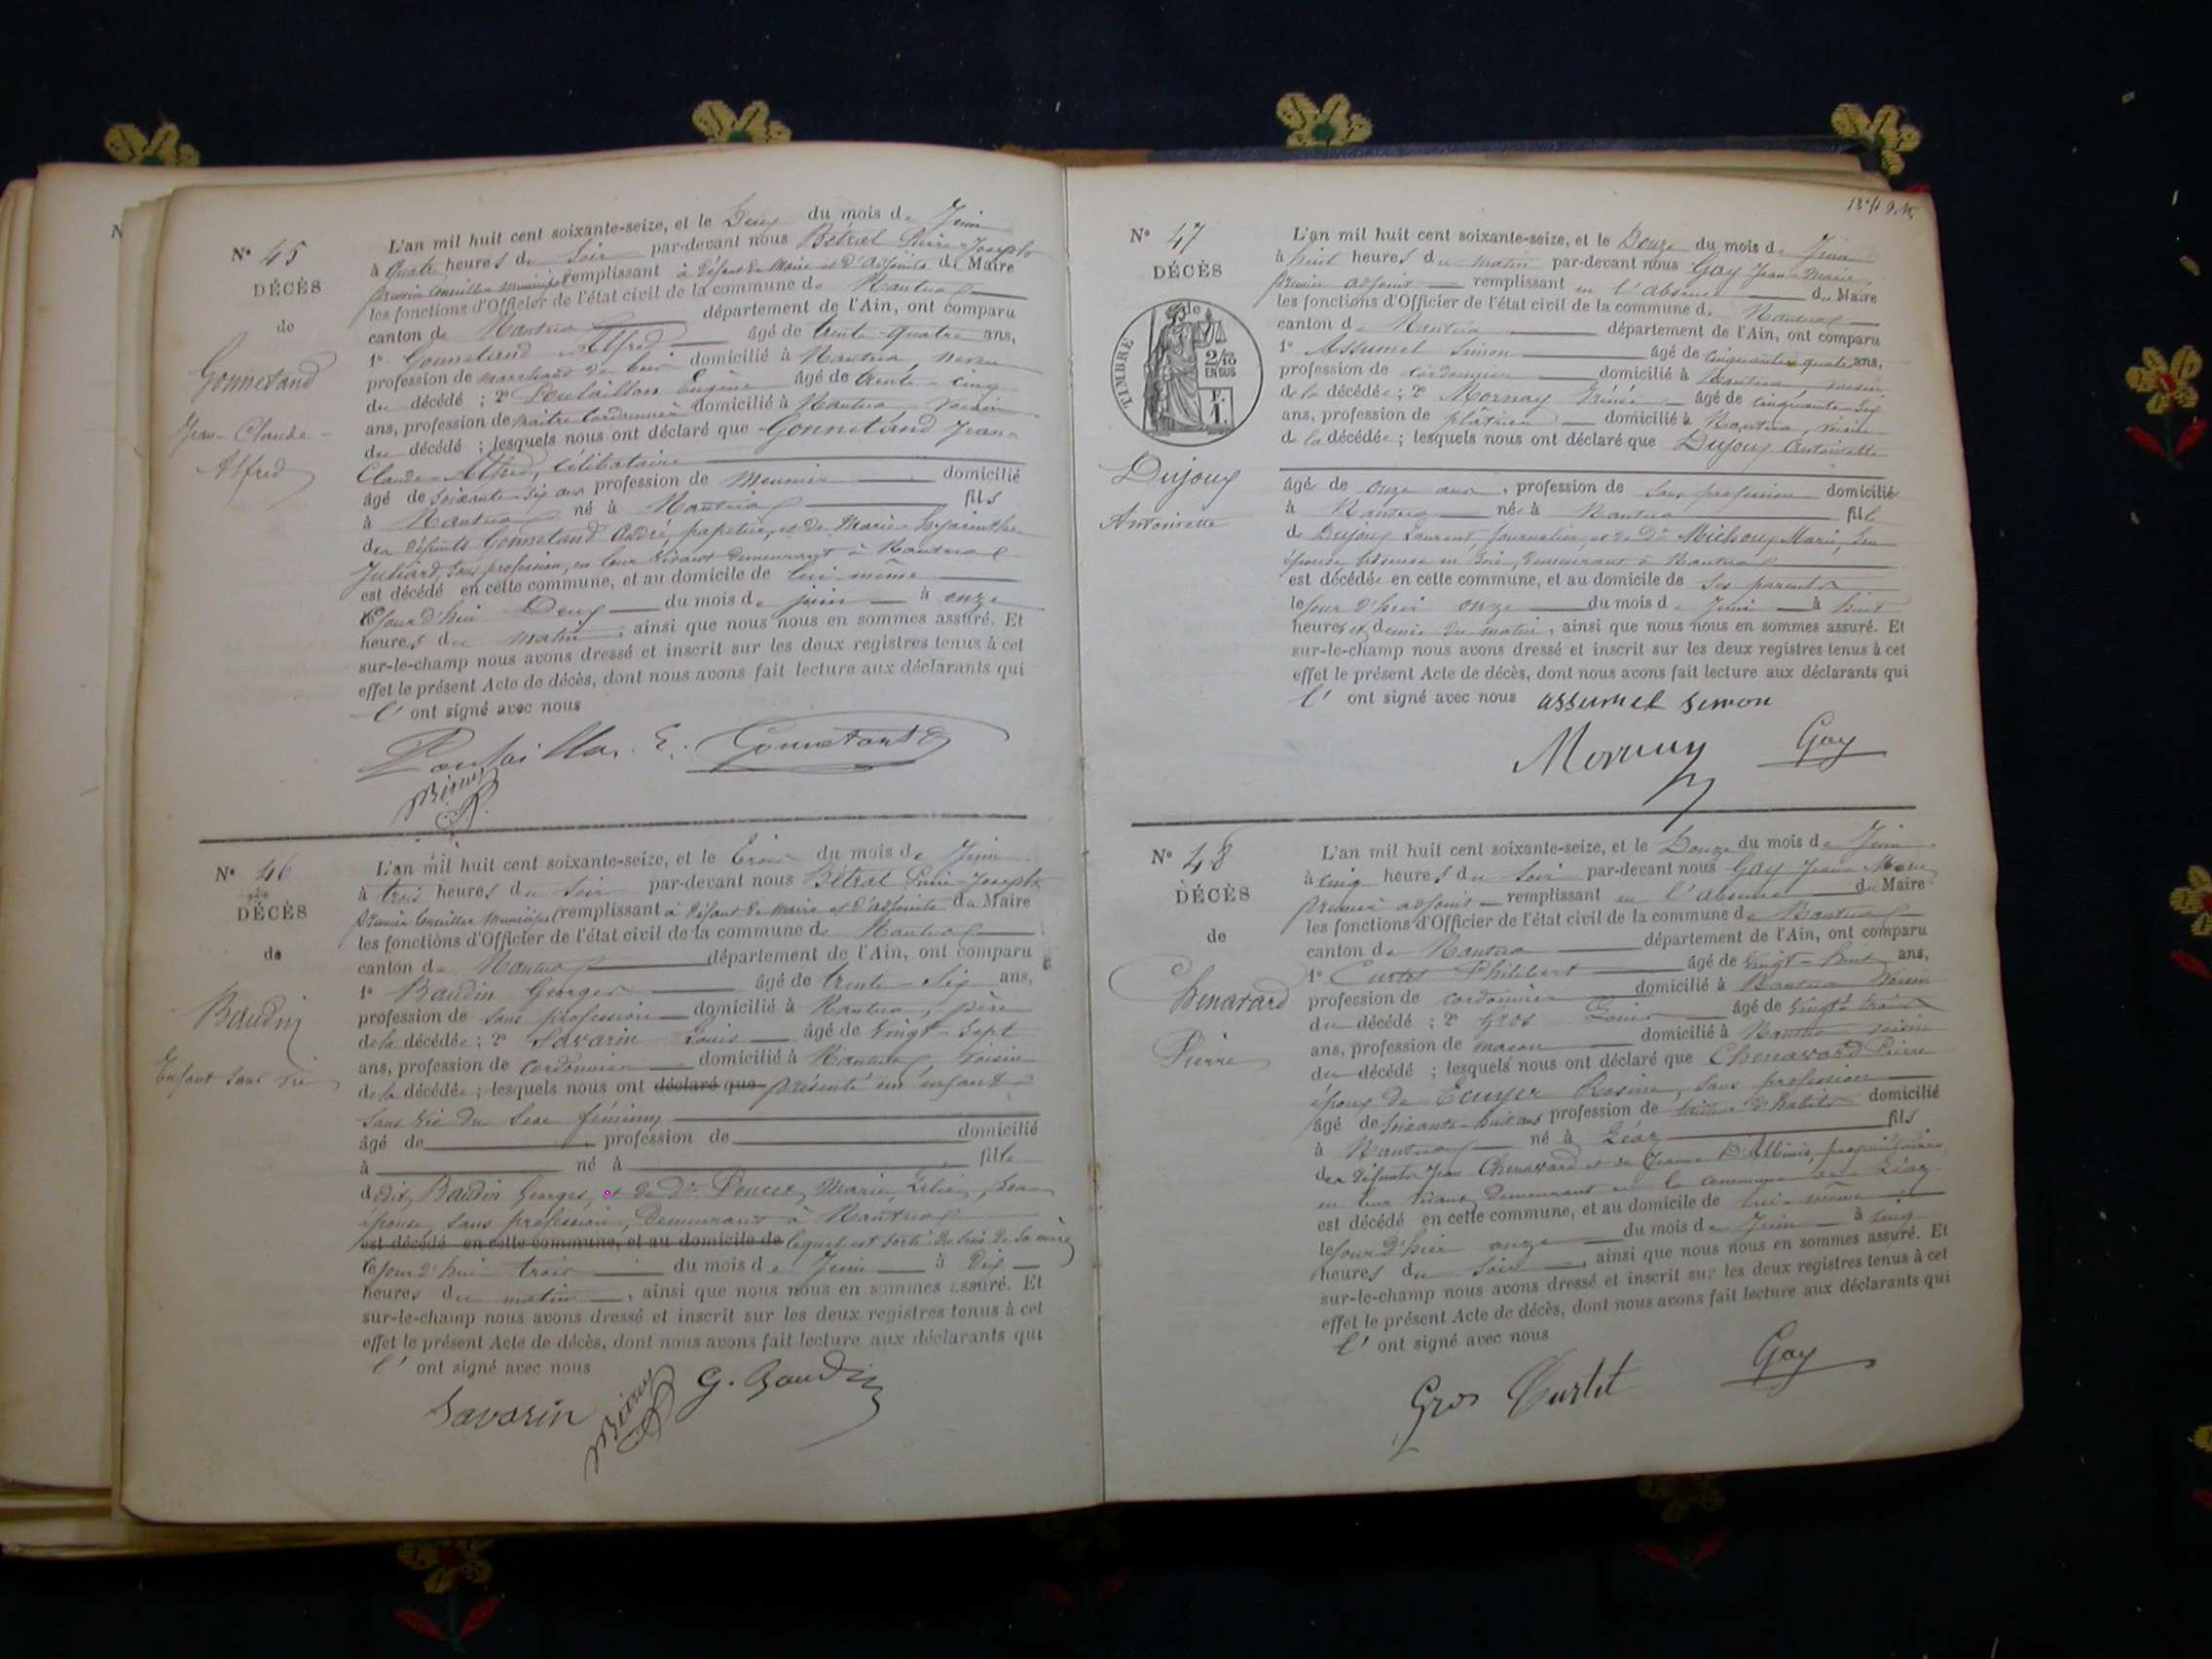 N° 45
DÉCÈS
de
Gonnetand
Jean-Claude-
Alfred
L'an mil huit cent soixante-seize, et le Deux du mois de Juin
à quatre heures du Soir par-devant nous Bétral Pierre-Joseph
Premier Conseiller Municipal remplissant à défaut de Maire et d'adjoints du Maire
les fonctions d'Officier de l'état civil de la commune de Nantua
canton de Nantua département de l'Ain, ont comparu
1° Gonnetand Alfred âgé de trente-quatre ans,
profession de marchand de domicilié à Nantua, neveu
du décédé ; 2° Poulaillon Eugène âgé de trente-cinq
ans, profession de maître cordonnier domicilié à Nantua voisin
du décédé ; lesquels nous ont déclaré que Gonnetand Jean-
Claude-Alfred, célibataire
âgé de soixante-six ans profession de Meunier domicilié
à Nantua né à Nantua fils
des défunts Gonnetand André, papetier, et de Marie-Hyacinthe
Juliard, sans profession, en leur vivant demeurant à Nantua
est décédé en cette commune, et au domicile de lui-même
lejourd'hui Deux du mois de juin à onze
heures du matin, ainsi que nous nous en sommes assuré. Et
sur-le-champ nous avons dressé et inscrit sur les deux registres tenus à cet
effet le présent Acte de décès, dont nous avons fait lecture aux déclarants qui
l' ont signé avec nous
Poulaillon. E. Gonnetand
N° 46
DÉCÈS
de
Baudin
Enfant sans vie
L'an mil huit cent soixante-seize, et le trois du mois de Juin
à trois heures du Soir par-devant nous Bétral Pierre-Joseph
Premier Conseiller Municipal remplissant à défaut de Maire et d'adjoints du Maire
les fonctions d'Officier de l'état civil de la commune de Nantua
canton de Nantua département de l'Ain, ont comparu
1° Baudin Georges âgé de trente-six ans,
profession de sans profession domicilié à Nantua, père
de la décédée ; 2° Savarin Louis âgé de vingt-sept
ans, profession de cordonnier domicilié à Nantua, voisin
de la décédée ; lesquels nous ont déclaré que présenté un enfant
sans vie du sexe féminin
âgé de profession de domicilié
à né à fille
dudit Baudin Georges, et de De Poncet, Marie, Zélie, son
épouse, sans profession, demeurant à Nantua
est décédé en cette commune, et au domicile de lequel est sorti du sein de sa mère
lejourd'hui trois du mois de Juin à Dix
heures du matin, ainsi que nous nous en sommes assuré. Et
sur-le-champ nous avons dressé et inscrit sur les deux registres tenus à cet
effet le présent Acte de décès, dont nous avons fait lecture aux déclarants qui
l' ont signé avec nous
Savarin G. Baudin
N° 47
DÉCÈS
de
TIMBRE
2/10
EN SUS
F.
1.
Dujoux
Antoinette
L'an mil huit cent soixante-seize, et le Douze du mois de Juin
à huit heures du matin par-devant nous Gay Jean-Marie
Premier adjoint remplissant en l'absence du Maire
les fonctions d'Officier de l'état civil de la commune de Nantua
canton de Nantua département de l'Ain, ont comparu
1° Assumel Simon âgé de cinquante-quatre ans,
profession de cordonnier domicilié à Nantua, voisin
de la décédée ; 2° Mornay Irénée âgé de cinquante-six
ans, profession de plâtrier domicilié à Nantua, voisin
de la décédée ; lesquels nous ont déclaré que Dujoux Antoinette
âgée de onze ans, profession de sans profession domiciliée
à Nantua née à Nantua fille
de Dujoux Laurent, journalier, et de De Michoux Marie, son
épouse, tisseuse en soie, demeurant à Nantua
est décédée en cette commune, et au domicile de ses parents
lejour d'hier onze du mois de Juin à huit
heures et demie du matin, ainsi que nous nous en sommes assuré. Et
sur-le-champ nous avons dressé et inscrit sur les deux registres tenus à cet
effet le présent Acte de décès, dont nous avons fait lecture aux déclarants qui
l' ont signé avec nous assumel simon
Mornay Gay
N° 48
DÉCÈS
de
Chenavard
Pierre
L'an mil huit cent soixante-seize, et le Douze du mois de Juin
à cinq heures du Soir par-devant nous Gay Jean-Marie
Premier adjoint remplissant en l'absence du Maire
les fonctions d'Officier de l'état civil de la commune de Nantua
canton de Nantua département de l'Ain, ont comparu
1° Curtet Philibert âgé de vingt-huit ans,
profession de cordonnier domicilié à Nantua voisin
du décédé ; 2° Gros Louis âgé de vingt-trois
ans, profession de maçon domicilié à Nantua voisin
du décédé ; lesquels nous ont déclaré que Chenavard Pierre
époux de Ecuyer Rosine, sans profession
âgé de soixante-huit ans profession de tailleur d'habits domicilié
à Nantua né à Géoz fils
des défunts Jean Chenavard et de Jeanne propriétaires
en leur vivant demeurant en la commune de Géoz
est décédé en cette commune, et au domicile de lui-même
lejourd'hier onze du mois de Juin à cinq
heures du Soir, ainsi que nous nous en sommes assuré. Et
sur-le-champ nous avons dressé et inscrit sur les deux registres tenus à cet
effet le présent Acte de décès, dont nous avons fait lecture aux déclarants qui
l' ont signé avec nous
Gros Curtet Gay